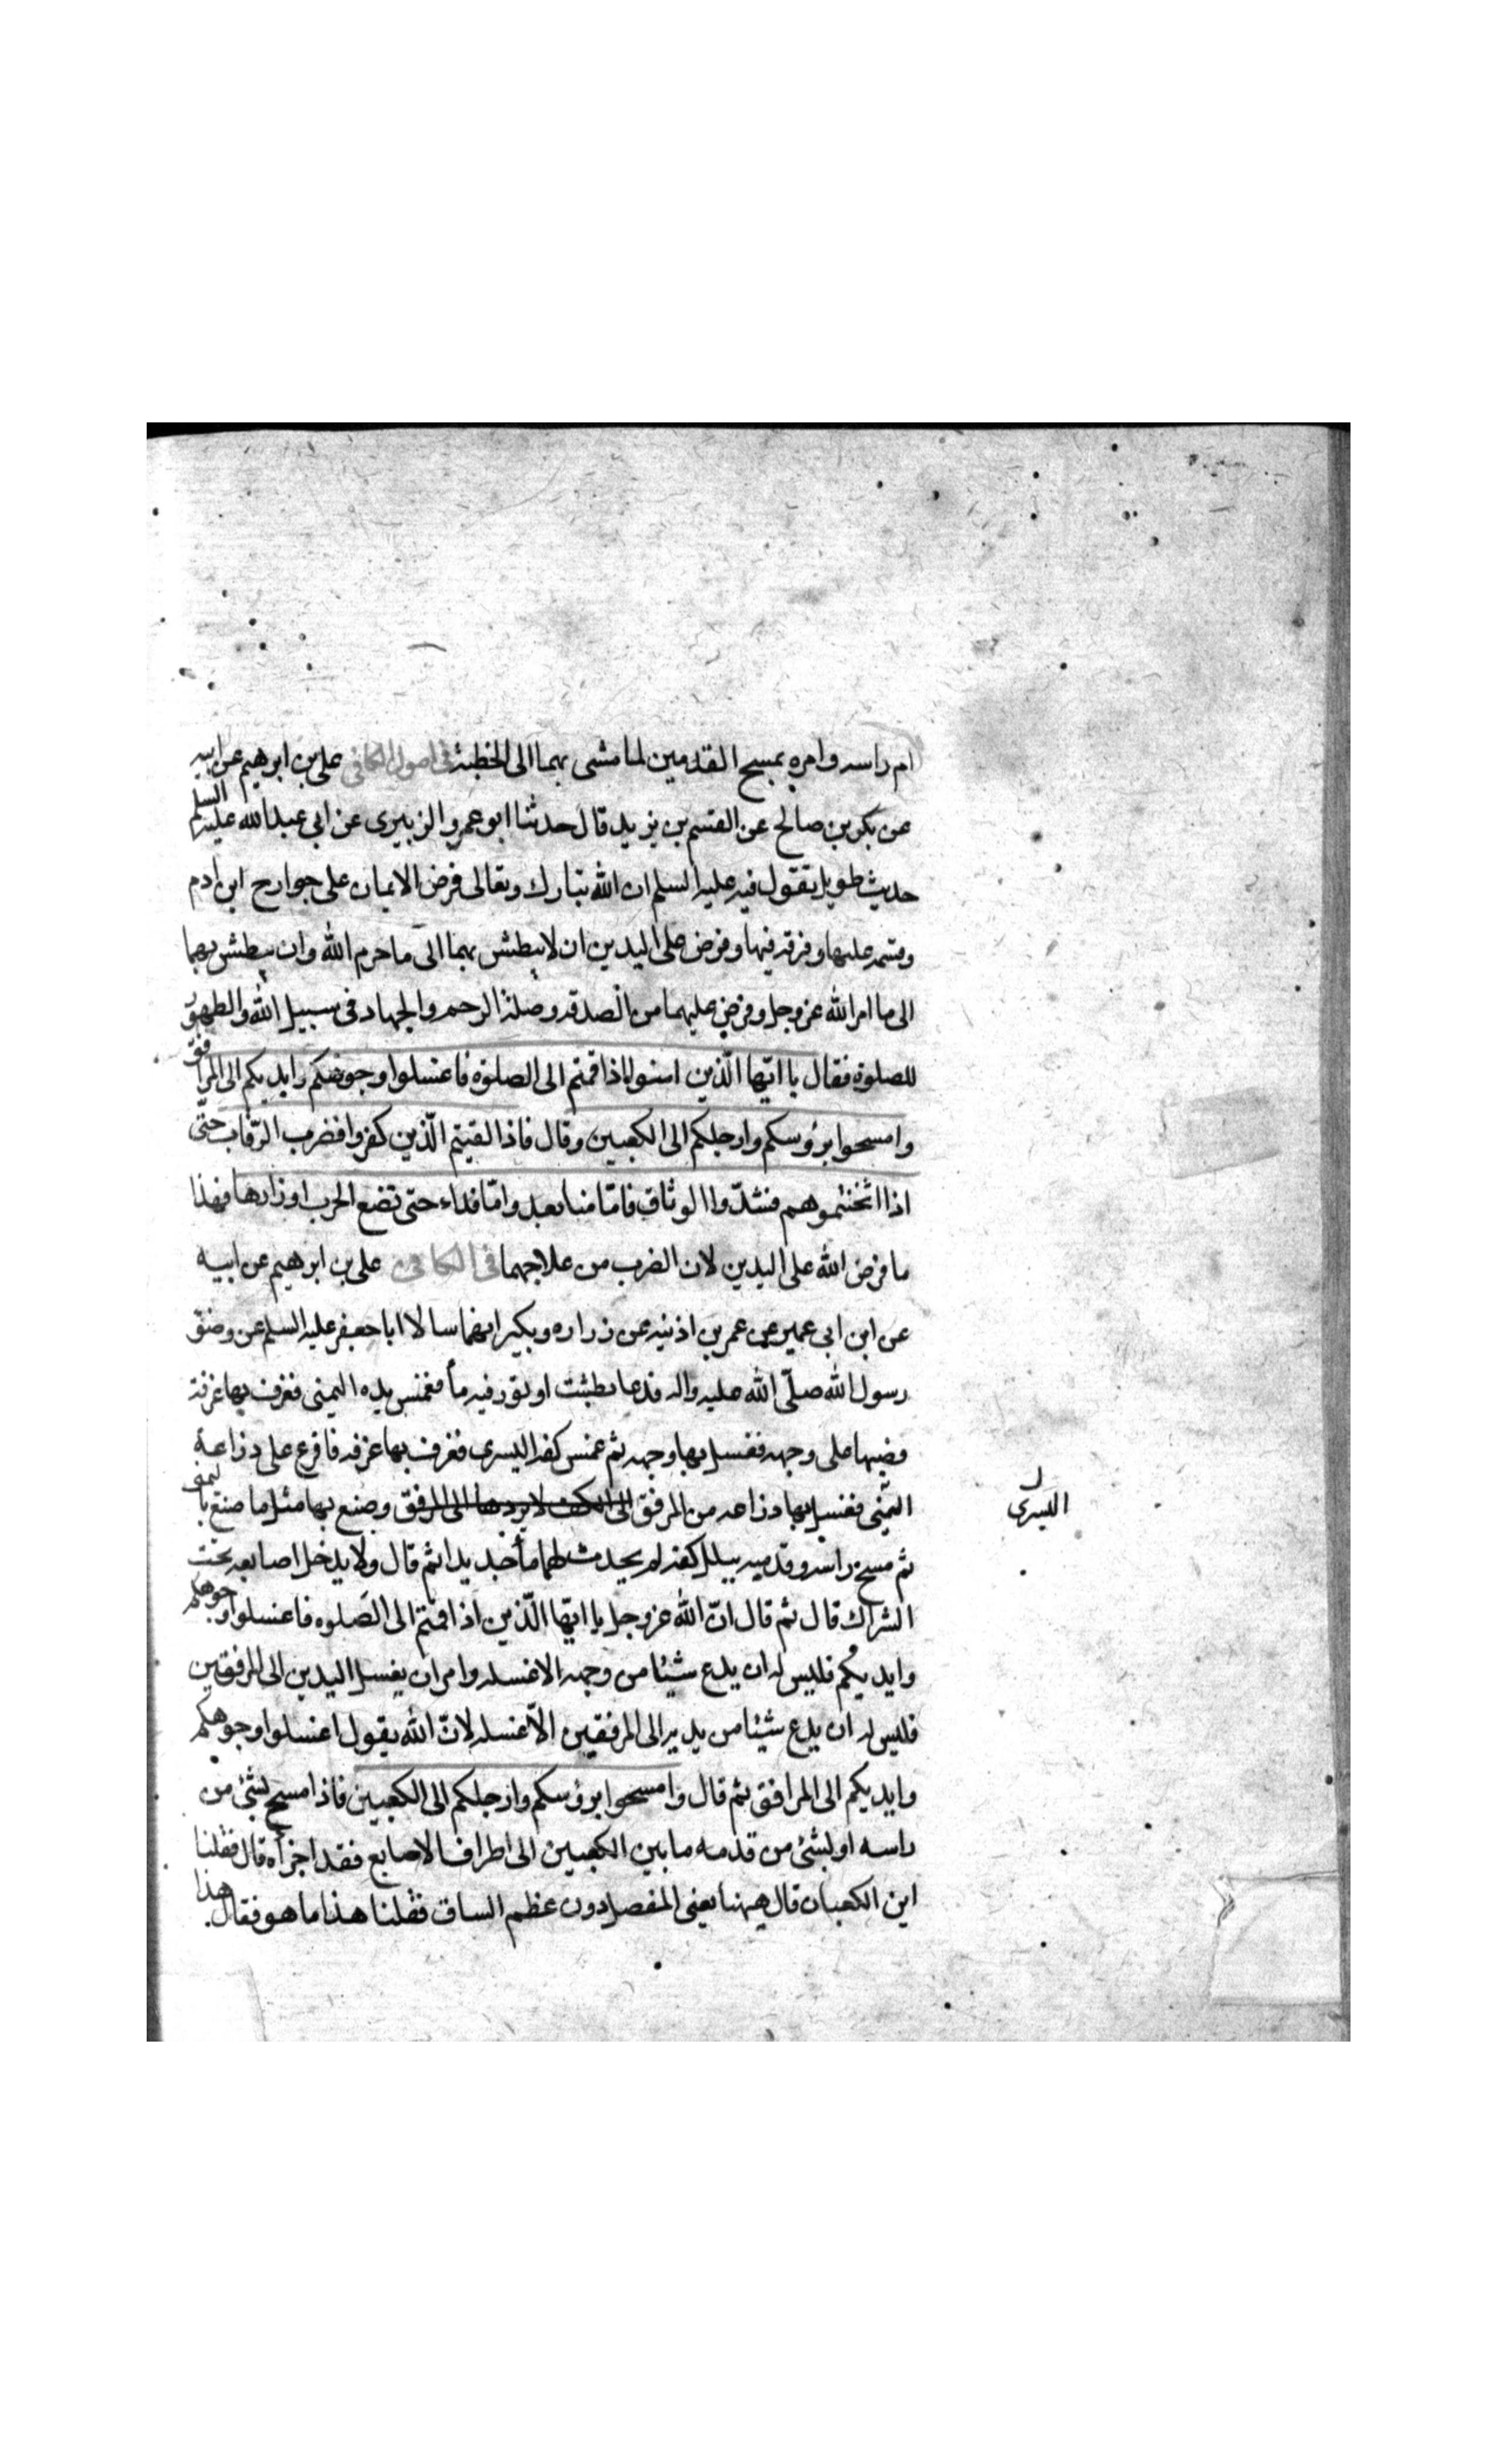 ام راسه وامره بمسح القدمين لما مشى بهما الى الخطيئة في اصول الكافي على بن ابرهيم عن ابيه
عن بكر بن صالح عن القسم بن بريد قال حدثنا ابو عمرو الزبيرى عن ابى عبد الله عليه السلم
حديث طويل يقول فيه عليه السلم ان الله تبارك وتعالى فرض الايمان على جوارح ابن ادم
وقسمه عليها وفرقه فيها وفرض على اليدين ان لا يبطش بهما الى ما حرم الله وان يبطش بهما
الى ما امر الله عز وجل وفرض عليهما من الصدقة وصلة الرحم والجهاد فى سبيل الله والطهور
للصلوة فقال يا ايّها الّذين امنوا اذا قمتم الى الصلوة فاغسلوا وجوهكم وايديكم الى المرافق
وامسحوا برؤسكم وارجلكم الى الكعبين وقال فاذا لقيتم الّذين كفروا فضرب الرّقاب حتّى
اذا اثخنتموهم فشدّوا الوثاق فامّا منا بعد وامّا فداء حتى تضع الحرب اوزارها فهذا
ما فرض الله على اليدين لان الضرب من علاجهما فى الكافى على بن ابرهيم عن ابيه
عن ابن ابى عمير عن عمر بن اذنيه عن زراره وبكير انهما سالا ابا جعفر عليه السلم عن وضوء
رسول الله صلّى الله عليه واله فدعا بطشت او تور فيه ماء فغمس يده اليمنى فغرف بها غرفة
فصبها على وجهه فغسل بها وجهه ثم غمس كفه اليسرى فغرف بها غرفه فافرغ على ذراعه
اليمنى فغسل بها ذراعه من المرفق الى الكف لا يردها الى المرفق وصنع بها مثل ما صنع باليمنى
اليسرى
ثم مسح راسه وقدميه ببلل كفه لم يحدث لهما ماء جديدا ثم قال ولا يدخل اصابعه تحت
الشراك قال ثم قال انّ الله عز وجل يا ايّها الّذين اذا قمتم الى الصّلوه فاغسلوا وجوهكم
وايديكم فليس له ان يدع شيئا من وجهه الا غسله وامر ان يغسل اليدين الى المرفقين
فليس له ان يدع شيئا من يديه الى المرفقين الّا غسله لانّ الله يقول اغسلوا وجوهكم
وايديكم الى المرافق ثم قال وامسحوا برؤسكم وارجلكم الى الكعبين فاذا مسح بشئ من
راسه او بشئ من قدمه ما بين الكعبين الى اطراف الاصابع فقد اجزأه قال فقلنا
اين الكعبان قال هيهنا يعنى المفصل دون عظم الساق فقلنا هذا ما هو فقال هذا